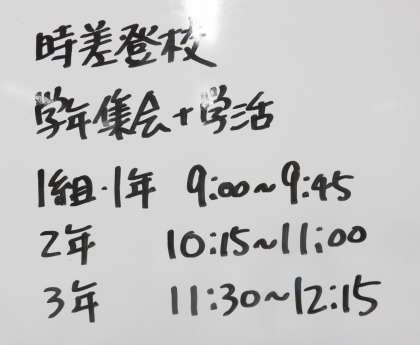 時差登校
学年集会+学活
1組・1年 9:00~9:45
2年 10:15~11:00
3年 11:30~12:15